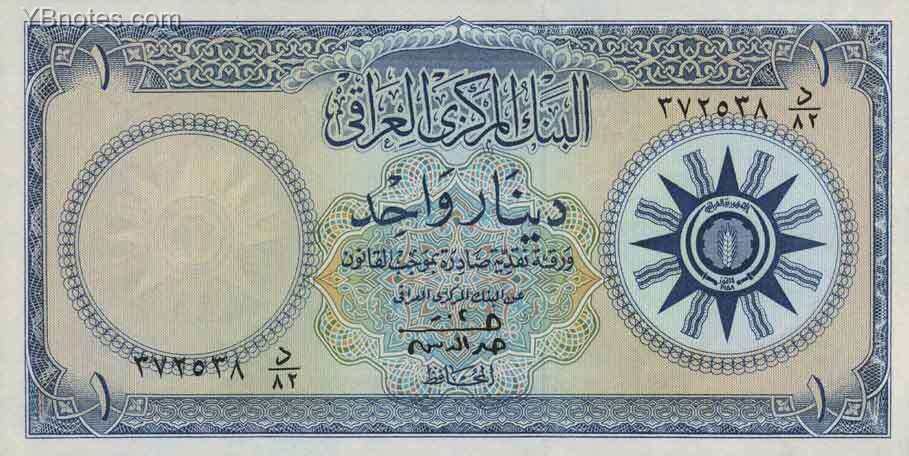 YBnotes.com
١ ١
البنك المركزي العراقي
٣٧٢٥٣٨ د/٨٢
دينار واحد
ورقة نقدية صادرة بموجب القانون
عن البنك المركزي العراقي
٣٧٢٥٣٨ د/٨٢
المحافظ
١ ١
الجمهورية العراقية
١٤ تموز
١٩٥٨